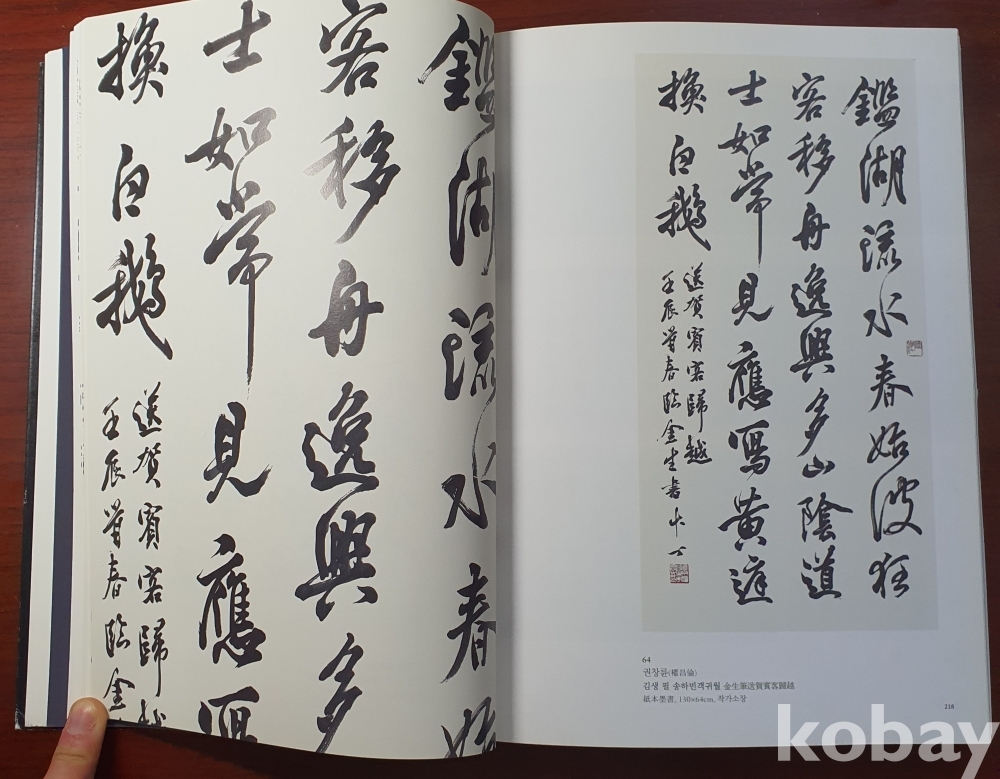 鑑湖流水春始
客移舟逸興多
士如常見應寫
換白鵝
送賀賓客歸越
壬辰暮春臨金
鑑湖流水春始波狂
客移舟逸興多山陰道
士如常見應寫黃庭
換白鵝
送賀賓客歸越
壬辰暮春臨金生書艸丁
64
권창륜(權昌倫)
김생 필 송하빈객귀월 金生筆送賀賓客歸越
紙本墨書, 130×64cm, 작가소장
218
kobay